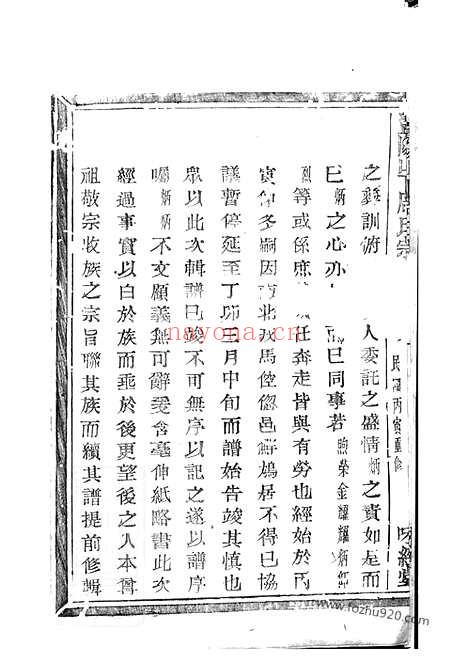 之彝訓俯 人委託之盛情炳之責如是而
已炳之心亦 已同事若煦榮金耀耀炳
烈等或係庶 任奔走皆與有勞也經始於丙
寅仲冬嗣因南北戎馬倥偬邑鮮鳩居不得已協
議暫停延至丁卯三月中旬而譜始告竣其慎也
眾以此次輯譜已竣不可無序以記之遂以譜序
囑炳炳不文顧義無可辭爰含毫伸紙略書此次
經過事實以白於族而垂於後更望後之人本尊
祖敬宗收族之宗旨聯其族而續其譜提前修輯
民國丙寅重修
nayona.cn
www.fozhu920.com